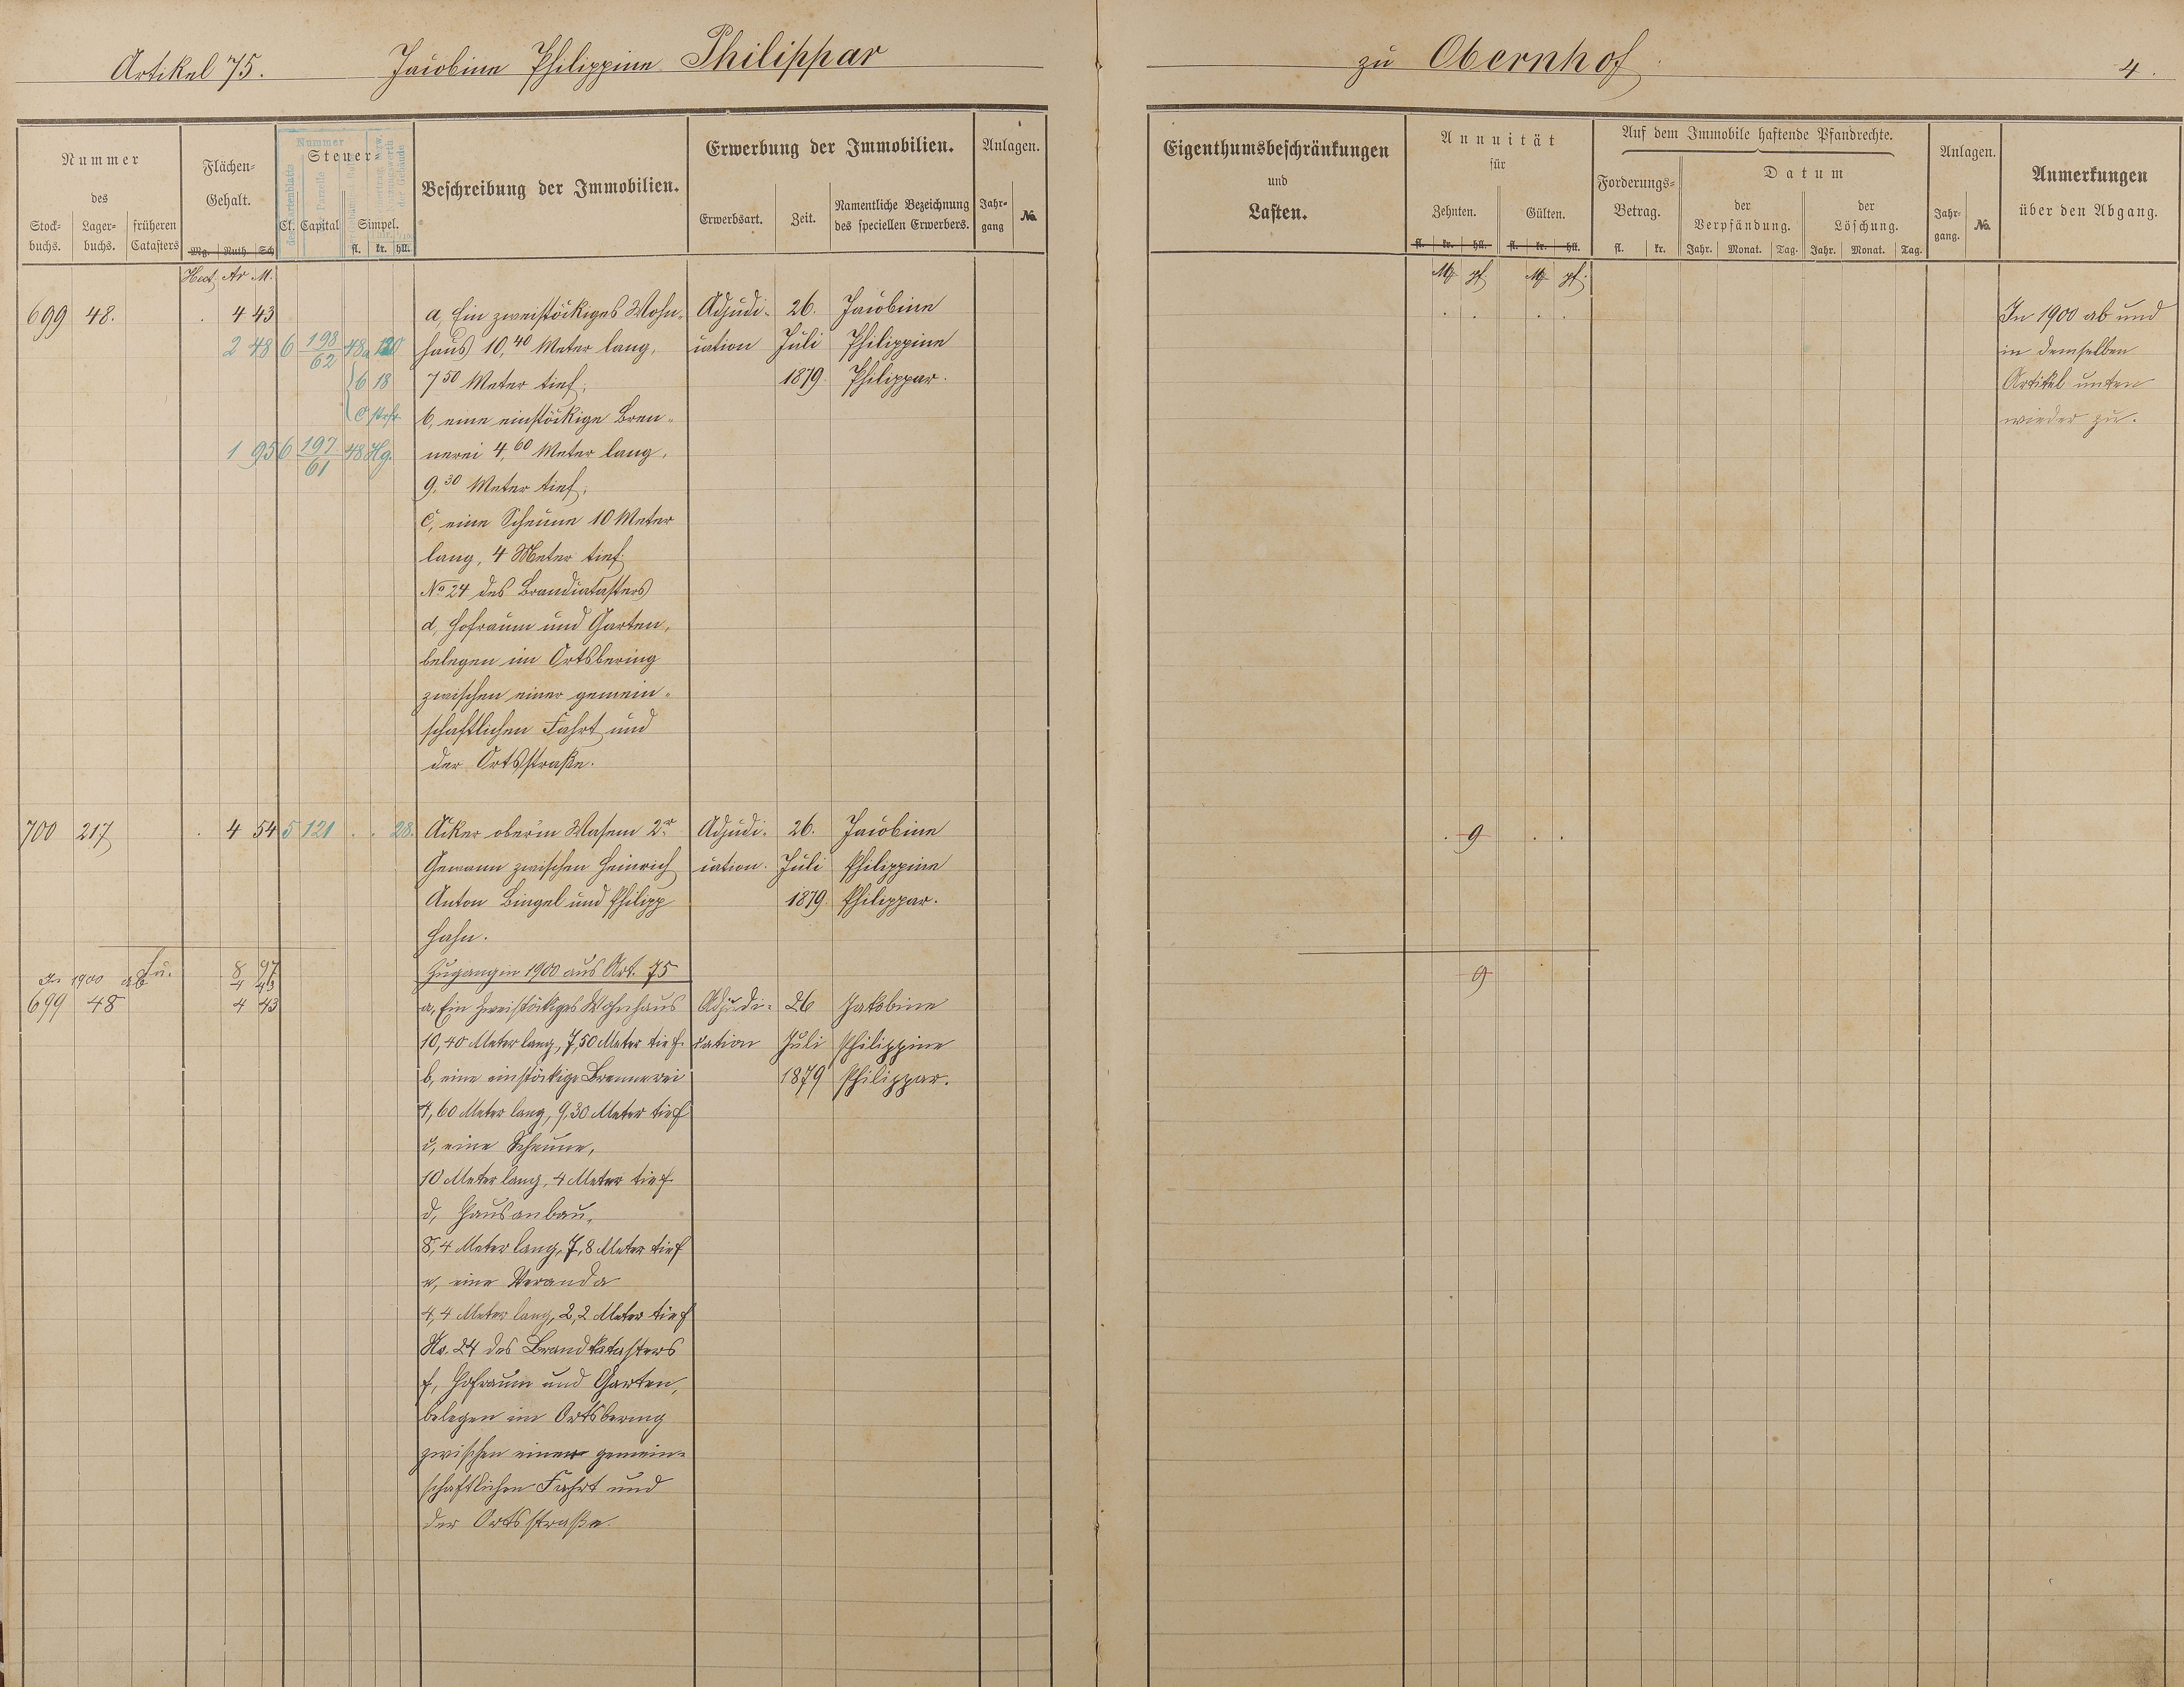 Artikel 75. Jacobine Philippine Philippar zu Obernhof. 4.
Nummer
des
Stock-
buchs.
Lager-
buchs.
früheren
Catasters
Flächen-
Gehalt.
Mg. Ruth. Sch
Nummer
des Kartenblatts
der Parzelle
Steuer-
Cl. Capital Simpel.
fl. kr. hll.
Beschreibung der Immobilien.
Erwerbung der Immobilien.
Erwerbsart. Zeit.
Namentliche Bezeichnung
des speciellen Erwerbers.
Anlagen.
Jahr-
gang
No.
Eigenthumsbeschränkungen
und
Lasten.
Annuität
für
Zehnten. Gülten.
fl. kr. hll. fl. kr. hll.
Auf dem Immobile haftende Pfandrechte.
Forderungs-
Betrag.
fl. kr.
Datum
der
Verpfändung.
Jahr. Monat. Tag.
der
Löschung.
Jahr. Monat. Tag.
Anlagen.
Jahr-
gang.
No.
Anmerkungen
über den Abgang.
Hect. Ar M.
M pf. M pf.
699 48. . 4 43
2 48 6 198/62 48 a 120
b 18
c strfr.
1 95 6 197/61 48 Hg.
a, Ein zweistöckiges Wohn-
haus 10,40 Meter lang,
7 50 Meter tief,
b, eine einstöckige Bren-
nerei 4,60 Meter lang,
9,30 Meter tief,
c, eine Scheune 10 Meter
lang, 4 Meter tief.
No 24 des Brandcatasters
d, Hofraum und Garten,
belegen im Ortsbering
zwischen einer gemein-
schaftlichen Fahrt und
der Ortsstraße.
Adjudi-
cation
26.
Juli
1879.
Jacobine
Philippine
Philippar.
In 1900 ab und
in demselben
Artikel unten
wieder zu.
700 217 . 4 54 5 121 . . 28.
Acker ober'm Wasem 2r
Gewann zwischen Heinrich
Anton Bingel und Philipp
Hahn.
Adjudi-
cation.
26.
Juli
1879.
Jacobine
Philippine
Philippar.
. 9 . .
8 97
In 1900 ab 4 43
9
Zugang in 1900 aus Art. 75
699 48 4 43
a, Ein zweistöckiges Wohnhaus
10,40 Meter lang, 7,50 Meter tief.
b, eine einstöckige Brennerei
4,60 Meter lang, 9,30 Meter tief
c, eine Scheune,
10 Meter lang, 4 Meter tief
d, Hausanbau,
8,4 Meter lang, 7,8 Meter tief
e, eine Veranda
4,4 Meter lang, 2,2 Meter tief
No. 24 des Brandkatasters
f, Hofraum und Garten,
belegen im Ortsbering
zwischen einer gemein-
schaftlichen Fahrt und
der Ortsstraße.
Adjudi-
cation
26
Juli
1879
Jakobine
Philippine
Philippar.